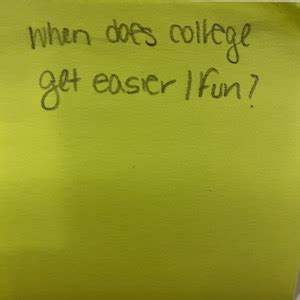 When does college
get easier / fun?